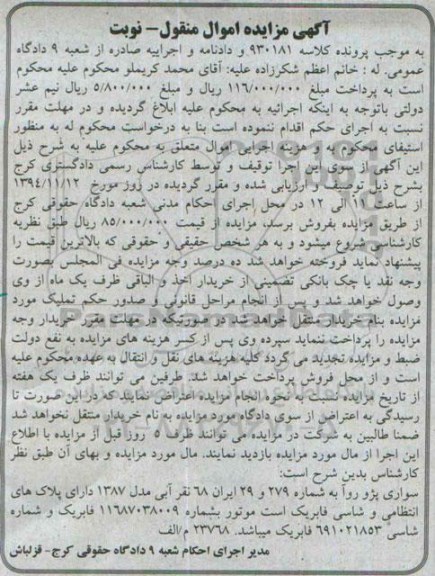 آگهی مزایده اموال منقول- نوبت
به موجب پرونده کلاسه ۹۳۰۱۸۱ و دادنامه و اجراییه صادره از شعبه ۹ دادگاه
عمومی. له : خانم اعظم شکرزاده علیه: آقای محمد کریملو محکوم علیه محکوم
است به پرداخت مبلغ ۱۱۶/۰۰۰/۰۰۰ ریال و مبلغ ۵/۸۰۰/۰۰۰ ریال نیم عشر
دولتی باتوجه به اینکه اجرائیه به محکوم علیه ابلاغ گردیده و در مهلت مقرر
نسبت به اجرای حکم اقدام ننموده است بنا به درخواست محکوم له به منظور
استیفای محکوم به و هزینه اجرایی اموال متعلق به محکوم علیه به شرح ذیل
این آگهی از سوی این اجرا توقیف و توسط کارشناس رسمی دادگستری کرج
بشرح ذیل توصیف و ارزیابی شده و مقرر گردیده در روز مورخ ۱۳۹۴/۱۱/۱۲
ساعت ۱۱ الی ۱۲ در محل اجرای احکام مدنی شعبه دادگاه حقوقی کرج
از طریق مزایده بفروش برسد، مزایده از قیمت ۸۵/۰۰۰/۰۰۰ ریال طبق نظریه
کارشناسی شروع میشود و به هر شخص حقیقی و حقوقی که بالاترین قیمت را
پیشنهاد نماید فروخته خواهد شد ده درصد وجه مزایده فی المجلس بصورت
وجه نقد یا چک بانکی تضمینی از خریدار اخذ و الباقی ظرف یک ماه از وی
وصول خواهد شد و پس از انجام مراحل قانونی و صدور حکم تملیک مورد
مزایده بنام خریدار منتقل خواهد شد در صورتیکه در مهلت مقرر خریدار وجه
مزایده را پرداخت ننماید سپرده وی پس از کسر هزینه های مزایده به نفع دولت
ضبط و مزایده تجدید می گردد کلیه هزینه های نقل و انتقال به عهده محکوم علیه
است و از محل فروش پرداخت خواهد شد. طرفین می توانند ظرف یک هفته
از تاریخ مزایده نسبت به نحوه انجام مزایده اعتراض نمایند که در این صورت تا
رسیدگی به اعتراض از سوی دادگاه مورد مزایده به نام خریدار منتقل نخواهد شد
ضمنا طالبین به شرکت در مزایده می توانند ظرف ۵ روز قبل از مزایده با اطلاع
این اجرا از مال مورد مزایده بازدید نمایند. مال مورد مزایده و بهای آن طبق نظر
کارشناس بدین شرح است:
سواری پژو روآ به شماره ۲۷۹ و ۲۹ ایران ۶۸ نقر آبی مدل ۱۳۸۷ دارای پلاک های
انتظامی و شاسی فابریک است موتور بشماره ۱۱۶۸۷۰۳۸۰۰۹ فابریک و شماره
شاسی ۶۹۱۰۲۱۸۵۳ فابریک میباشد. ۲۳۷۶۸ م/الف
مدیر اجرای احکام شعبه ۹ دادگاه حقوقی کرج- قزلباش